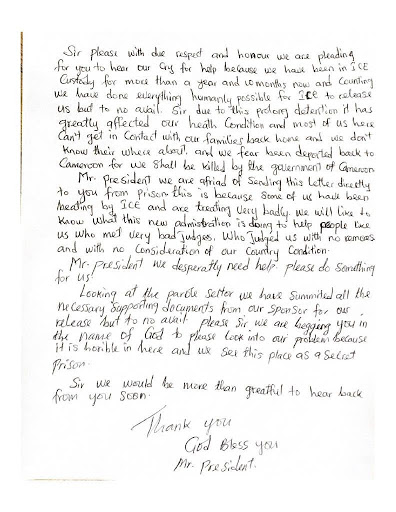 Sir please with due respect and honour we are pleading
for you to hear our Cry for help because we have been in ICE
Custody for more than a year and 10 months now and Counting
we have done everything humanly possible for ICE to release
us but to no avail. Sir due to this prolong detention it has
greatly affected our health Condition and most of us here
Can't get in Contact with our families back home and we don't
know their where about. and we fear been deported back to
Cameroon for we Shall be killed by the government of Cameroon
Mr. President we are afraid of Sending this Letter directly
to you from Prison. this is because Some of us have been
beating by ICE and are treating Very badly. we will like to
know what this new admistration is doing to help people like
us who met very bad judges. Who Judged us with no remoss
and with no Consideration of our Country Condition.
Mr. president we desparatly need help please do Something
for us!
Looking at the parole sector we have Summited all the
necessary Supporting documents from our Sponsor for our
release but to no avail please Sir we are begging you in
the name of God to please Look into our problem because
it is horible in here and we see this place as a Secret
Prison.
Sir we would be more than greatful to hear back
from you Soon.
Thank you
God Bless you
Mr. President.